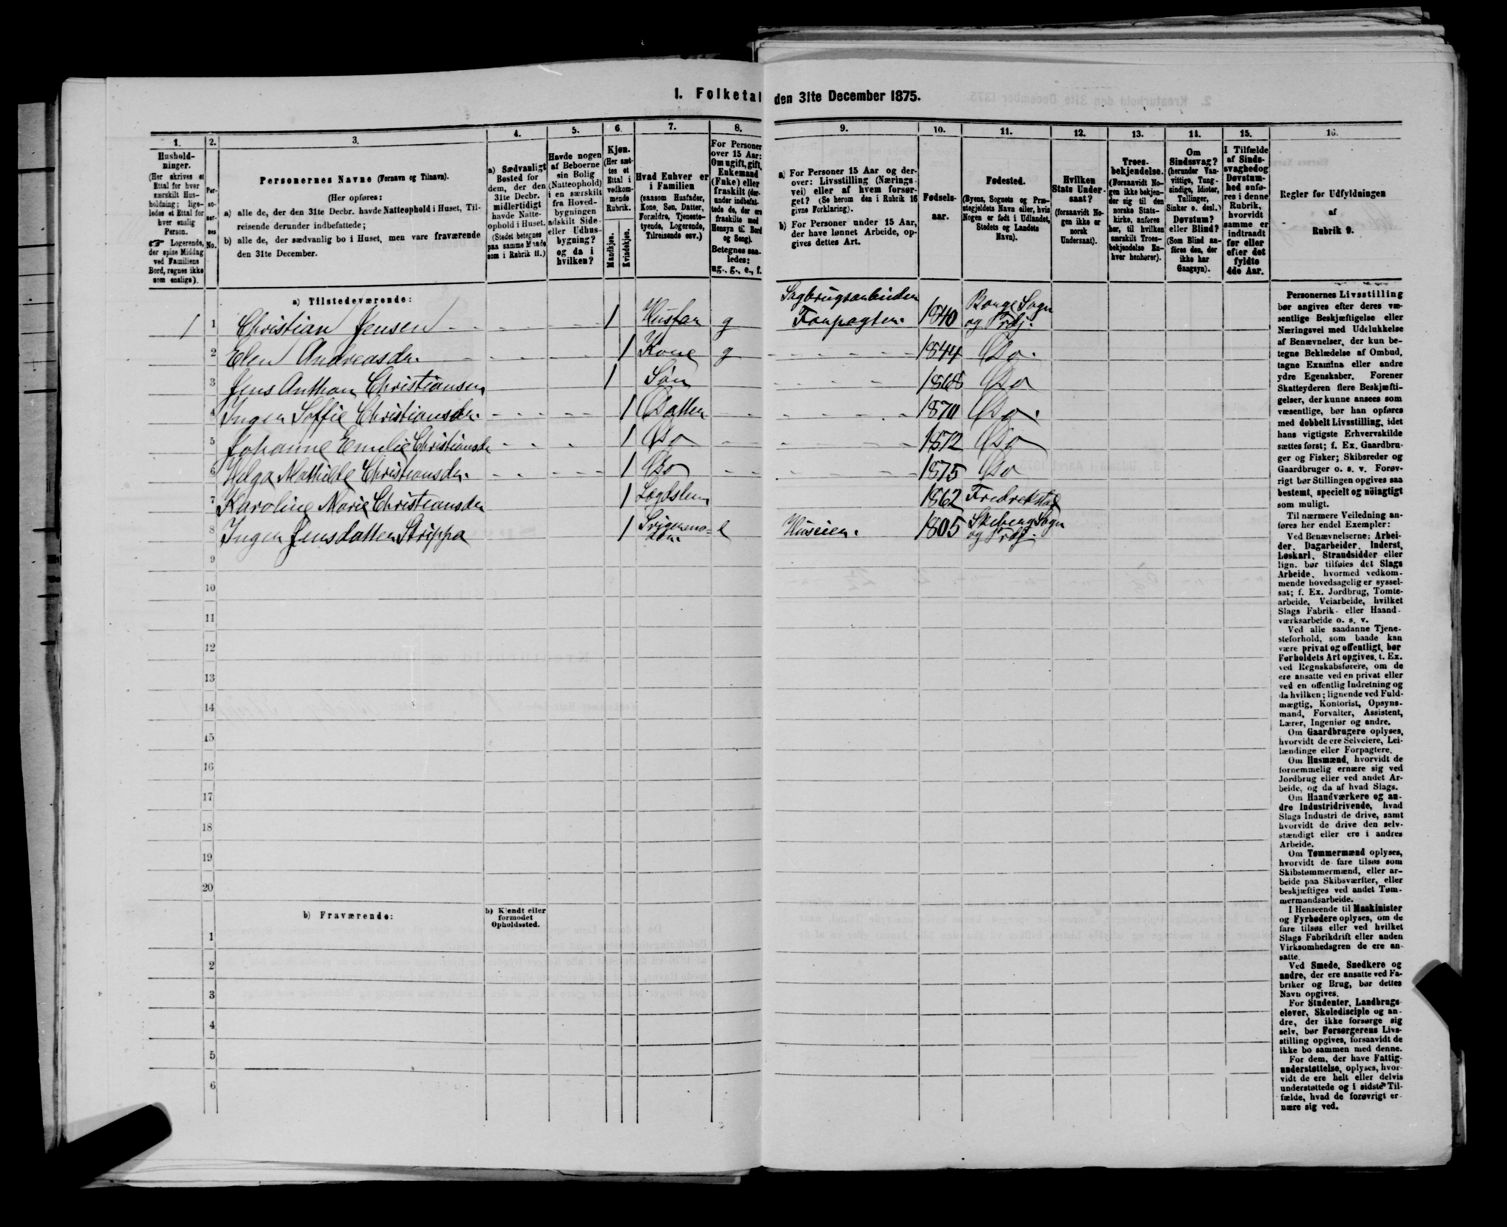 1. Folketal den 31te December 1875.
1.
Hushold-
ninger.
(Her skrives et
Ettal for hver
særskilt Hus-
holdning; lige-
ledes et Ettal for
hver enslig
Person.
☞ Logerende,
der spise Middag
ved Familiens
Bord, regnes ikke
som enslige).
2.
Per-
so-
ner-
nes
No.
3.
Personernes Navne (Fornavn og Tilnavn).
(Her opføres:
a) alle de, der den 31te Decbr. havde Natteophold i Huset, Til-
reisende derunder indbefattede;
b) alle de, der sædvanlig bo i Huset, men vare fraværende
den 31te December.
4.
a) Sædvanligt
Bosted for
dem, der den
31te Decbr.
midlertidigt
havde Natte-
ophold i Huset.
(Stedet betegnes
paa samme Maade
som i Rubrik 11.)
5.
Havde nogen
af Beboerne
sin Bolig
(Natteophold)
i en særskilt
fra Hoved-
bygningen
adskilt Side-
eller Udhus-
bygning?
og da i
hvilken?
6.
Kjøn.
(Her sæt-
tes et
Ettal i
vedkom-
mende
Rubrik.
Mandkjøn.
Kvindekjøn.
7.
Hvad Enhver er
i Familien
(saasom Husfader,
Kone, Søn, Datter,
Forældre, Tjeneste-
tyende, Logerende,
Tilreisende osv.)
8.
For Personer
over 15 Aar:
Om ugift, gift,
Enkemand
(Enke) eller
fraskilt (der-
under indbefat-
tede de, der ere
fraskilte med
Hensyn til Bord
og Seng).
Betegnes saa-
ledes:
ug., g., e., f.
9.
a) For Personer 15 Aar og der-
over: Livsstilling (Nærings-
vei) eller af hvem forsør-
get? (Se herom den i Rubrik 16
givne Forklaring).
b) For Personer under 15 Aar,
der have lønnet Arbeide, op-
gives dettes Art.
10.
Fødsels-
aar.
11.
Fødested.
(Byens, Sognets og Præ-
stegjeldets Navn eller, hvis
Nogen er født i Udlandet,
Stedets og Landets
Navn).
12.
Hvilken
Stats Under-
saat?
(forsaavidt No-
gen ikke er
norsk
Undersaat).
13.
Troes-
bekjendelse.
(Forsaavidt No-
gen ikke bekjen-
der sig til den
norske Stats-
kirke, anføres
her, til hvilken
særskilt Troes-
bekjendelse En-
hver henhører).
14.
Om
Sindssvag?
(herunder Van-
vittige, Tung-
sindige, Idioter,
Tullinger,
Sinker o. desl.)
Døvstum?
eller Blind?
(Som Blind an-
føres den, der
ikke har
Gangsyn).
15.
I Tilfælde
af Sinds-
svaghed og
Døvstum-
hed anfø-
res i denne
Rubrik,
hvorvidt
samme er
indtraadt
før eller
efter det
fyldte
4de Aar.
16.
Regler før Udfyldningen
af
Rubrik 9.
a) Tilstedeværende:
1 1 Christian Jensen 1 Husfar g Sagbrugsarbeider Forpagter. 1840 Borge Sogn og Præj.
2 Elen Andreasdr. 1 Kone g 1844 Do.
3 Jens Anthon Christiansen 1 Søn 1868 Do
4 Inger Soffie Christiansdr. 1 Datter 1870 Do.
5 Johanne Emilie Christiansdr 1 Do 1872 Do
6 Helga Mathilde Christiansdr. 1 Do 1875 Do
7 Karoline Marie Christiansdr 1 1862 Fredrikstad
8 Inger Jensdatter Strippa 1 Svigermo- der. e Huseier. 1805 Skeberg Sogn og Præj.
9
10
11
12
13
14
15
16
17
18
19
20
b) Fraværende:
b) Kjendt eller
formodet
Opholdssted.
1
2
3
4
5
6
Personernes Livsstilling
bør angives efter deres væ-
sentlige Beskjæftigelse eller
Næringsvei med Udelukkelse
af Benævnelser, der kun be-
tegne Beklædelse af Ombud,
tagne Examina eller andre
ydre Egenskaber. Forener
Skatteyderen flere Beskjæfti-
gelser, der kunne ansees som
væsentlige, bør han opføres
med dobbelt Livsstilling, idet
hans vigtigste Erhvervskilde
sættes først; f. Ex. Gaardbru-
ger og Fisker; Skibsreder og
Gaardbruger o. s. v. Forøv-
rigt bør Stillingen opgives saa
bestemt, specielt og nøiagtigt
som muligt.
Til nærmere Veiledning an-
føres her endel Exempler:
Ved Benævnelserne: Arbei-
der, Dagarbeider, Inderst,
Løskarl, Strandsidder eller
lign. bør tilføies det Slags
Arbeide, hvormed vedkom-
mende hovedsagelig er syssel-
sat; f. Ex. Jordbrug, Tomte-
arbeide, Veiarbeide, hvilket
Slags Fabrik- eller Haand-
værksarbeide o. s. v.
Ved alle saadanne Tjene-
steforhold, som baade kan
være privat og offentligt, bør
Forholdets Art opgives, f. Ex.
ved Regnskabsførere, om de
ere ansatte ved en privat eller
ved en offentlig Indretning og
da hvilken; lignende ved Fuld-
mægtig, Kontorist, Opsyns-
mand, Forvalter, Assistent,
Lærer, Ingeniør og andre.
Om Gaardbrugere oplyses,
hvorvidt de ere Selveiere, Lei-
lændinge eller Forpagtere.
Om Husmænd, hvorvidt de
fornemmelig ernære sig ved
Jordbrug eller ved andet Ar-
beide, og da af hvad Slags.
Om Haandværkere og an-
dre Industridrivende, hvad
Slags Industri de drive, samt
hvorvidt de drive den selv-
stændigt eller ere i andres
Arbeide.
Om Tømmermænd oplyses,
hvorvidt de fare tilsøs som
Skibstømmermænd, eller ar-
beide paa Skibsværfter, eller
beskjæftiges ved andet Tøm-
mermandsarbeide.
I Henseende til Maskinister
og Fyrbødere oplyses, om de
fare tilsøs eller ved hvilket
Slags Fabrikdrift eller anden
Virksomhedsgren de ere an-
satte.
Ved Smede, Snedkere og
andre, der ere ansatte ved Fa-
briker og Brug, bør dettes
Navn opgives.
For Studenter, Landbrugs-
elever, Skoledisciple og an-
dre, der ikke forsørge sig
selv, bør Forsørgerens Livs-
stilling opgives, forsaavidt de
ikke bo sammen med denne.
For dem, der have Fattig-
understøttelse, oplyses, hvor-
vidt de ere helt eller delvis
understøttede og i sidste Til-
fælde, hvad de forøvrigt er-
nære sig ved.